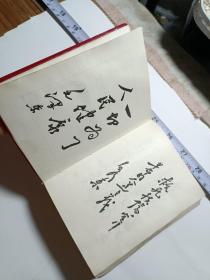 一切为了
人民健康
毛泽东
救死扶傷实行
革命的人道主義
毛泽东